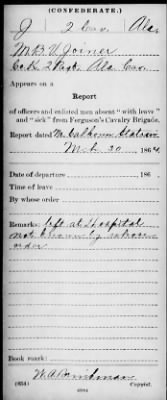 (CONFEDERATE.)
J 2 Cav. Ala.
M. B. U. Joiner
Co. K, 2 Reg't. Ala. Cav.
Appears on a
Report
of officers and enlisted men absent "with leave"
and "sick" from Ferguson's Cavalry Brigade.
Report dated M. Calhoun Station
Mch 30, 1864.
Date of departure , 186 .
Time of leave
By whose order
Remarks: left at Hospital
not known by
order
Book mark:
(654) Copyist.